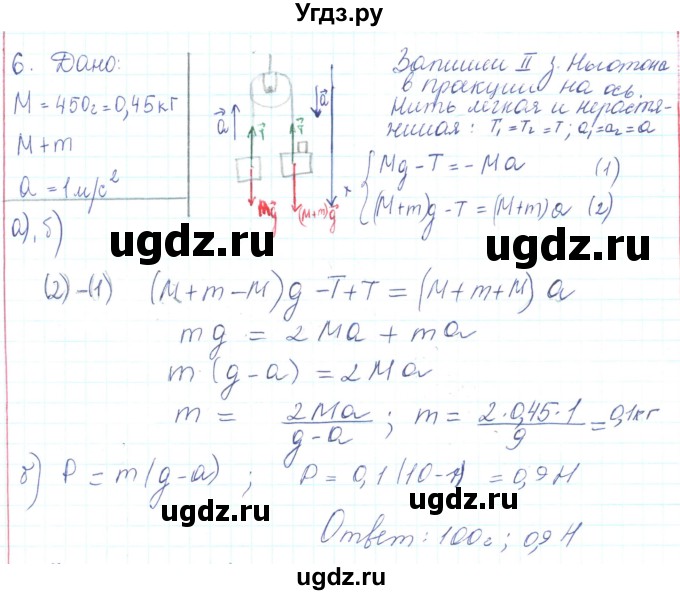 Угдз.ру
6. Дано:
M = 450г = 0,45кг
M + m
a = 1 м/с²
а), б)
a⃗
T⃗
T⃗
a⃗
Mg⃗
(M+m)g⃗
x
Запишем II з. Ньютона
в проекции на ось.
Нить лёгкая и нерастя-
жимая: T₁ = T₂ = T; a₁ = a₂ = a
Mg - T = - Ma (1)
(M+m)g - T = (M+m)a (2)
ugdz.ru ugdz.ru
(2)-(1) (M+m-M)g - T + T = (M+m+M) a
mg = 2Ma + ma
ugdz.ru ugdz.ru
m (g-a) = 2Ma
m = 2Ma / g-a ; m = 2·0,45·1 / 9 = 0,1кг
б) P = m(g-a) ; P = 0,1(10-1) = 0,9Н
ugdz.ru ugdz.ru
Ответ: 100г; 0,9Н
ugdz.ru